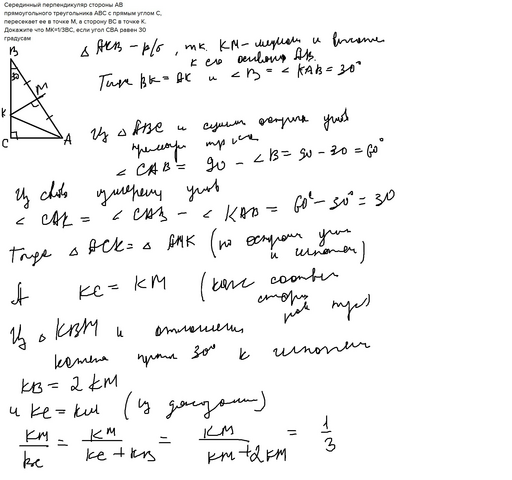 Серединный перпендикуляр стороны АВ
прямоугольного треугольника АВС с прямым углом С,
пересекает ее в точке М, а сторону ВС в точке К.
Докажите что МК=1/3ВС, если угол СВА равен 30
градусам
B
30
M
K
C
A
△ AKB - р/б, т.к. KM - медиана и высота
к его основан AB.
Тогда BK = AK и ∠B = ∠KAB = 30°
Из △ ABC и сумм острых углов
∠ CAB = 90 - ∠B = 90 - 30 = 60°
Из углов
∠ CAK = ∠ CAB - ∠ KAB = 60° - 30° = 30
Тогда △ ACK = △ AMK (по острому углу
и гипотен)
А KC = KM (как соответ
сторон
рав треуг)
Из △ KBM и отношени
катета против 30° к гипотен
KB = 2 KM
и KC = KM (из )
KM/BC = KM/KC + KB = KM/KM + 2KM = 1/3